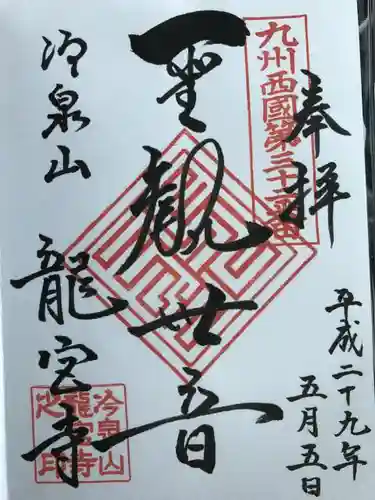 奉拝
九州西國第三十二番
聖観世音
冷泉山 龍宮寺
平成二十九年
五月五日
冷泉山
龍宮寺
之印